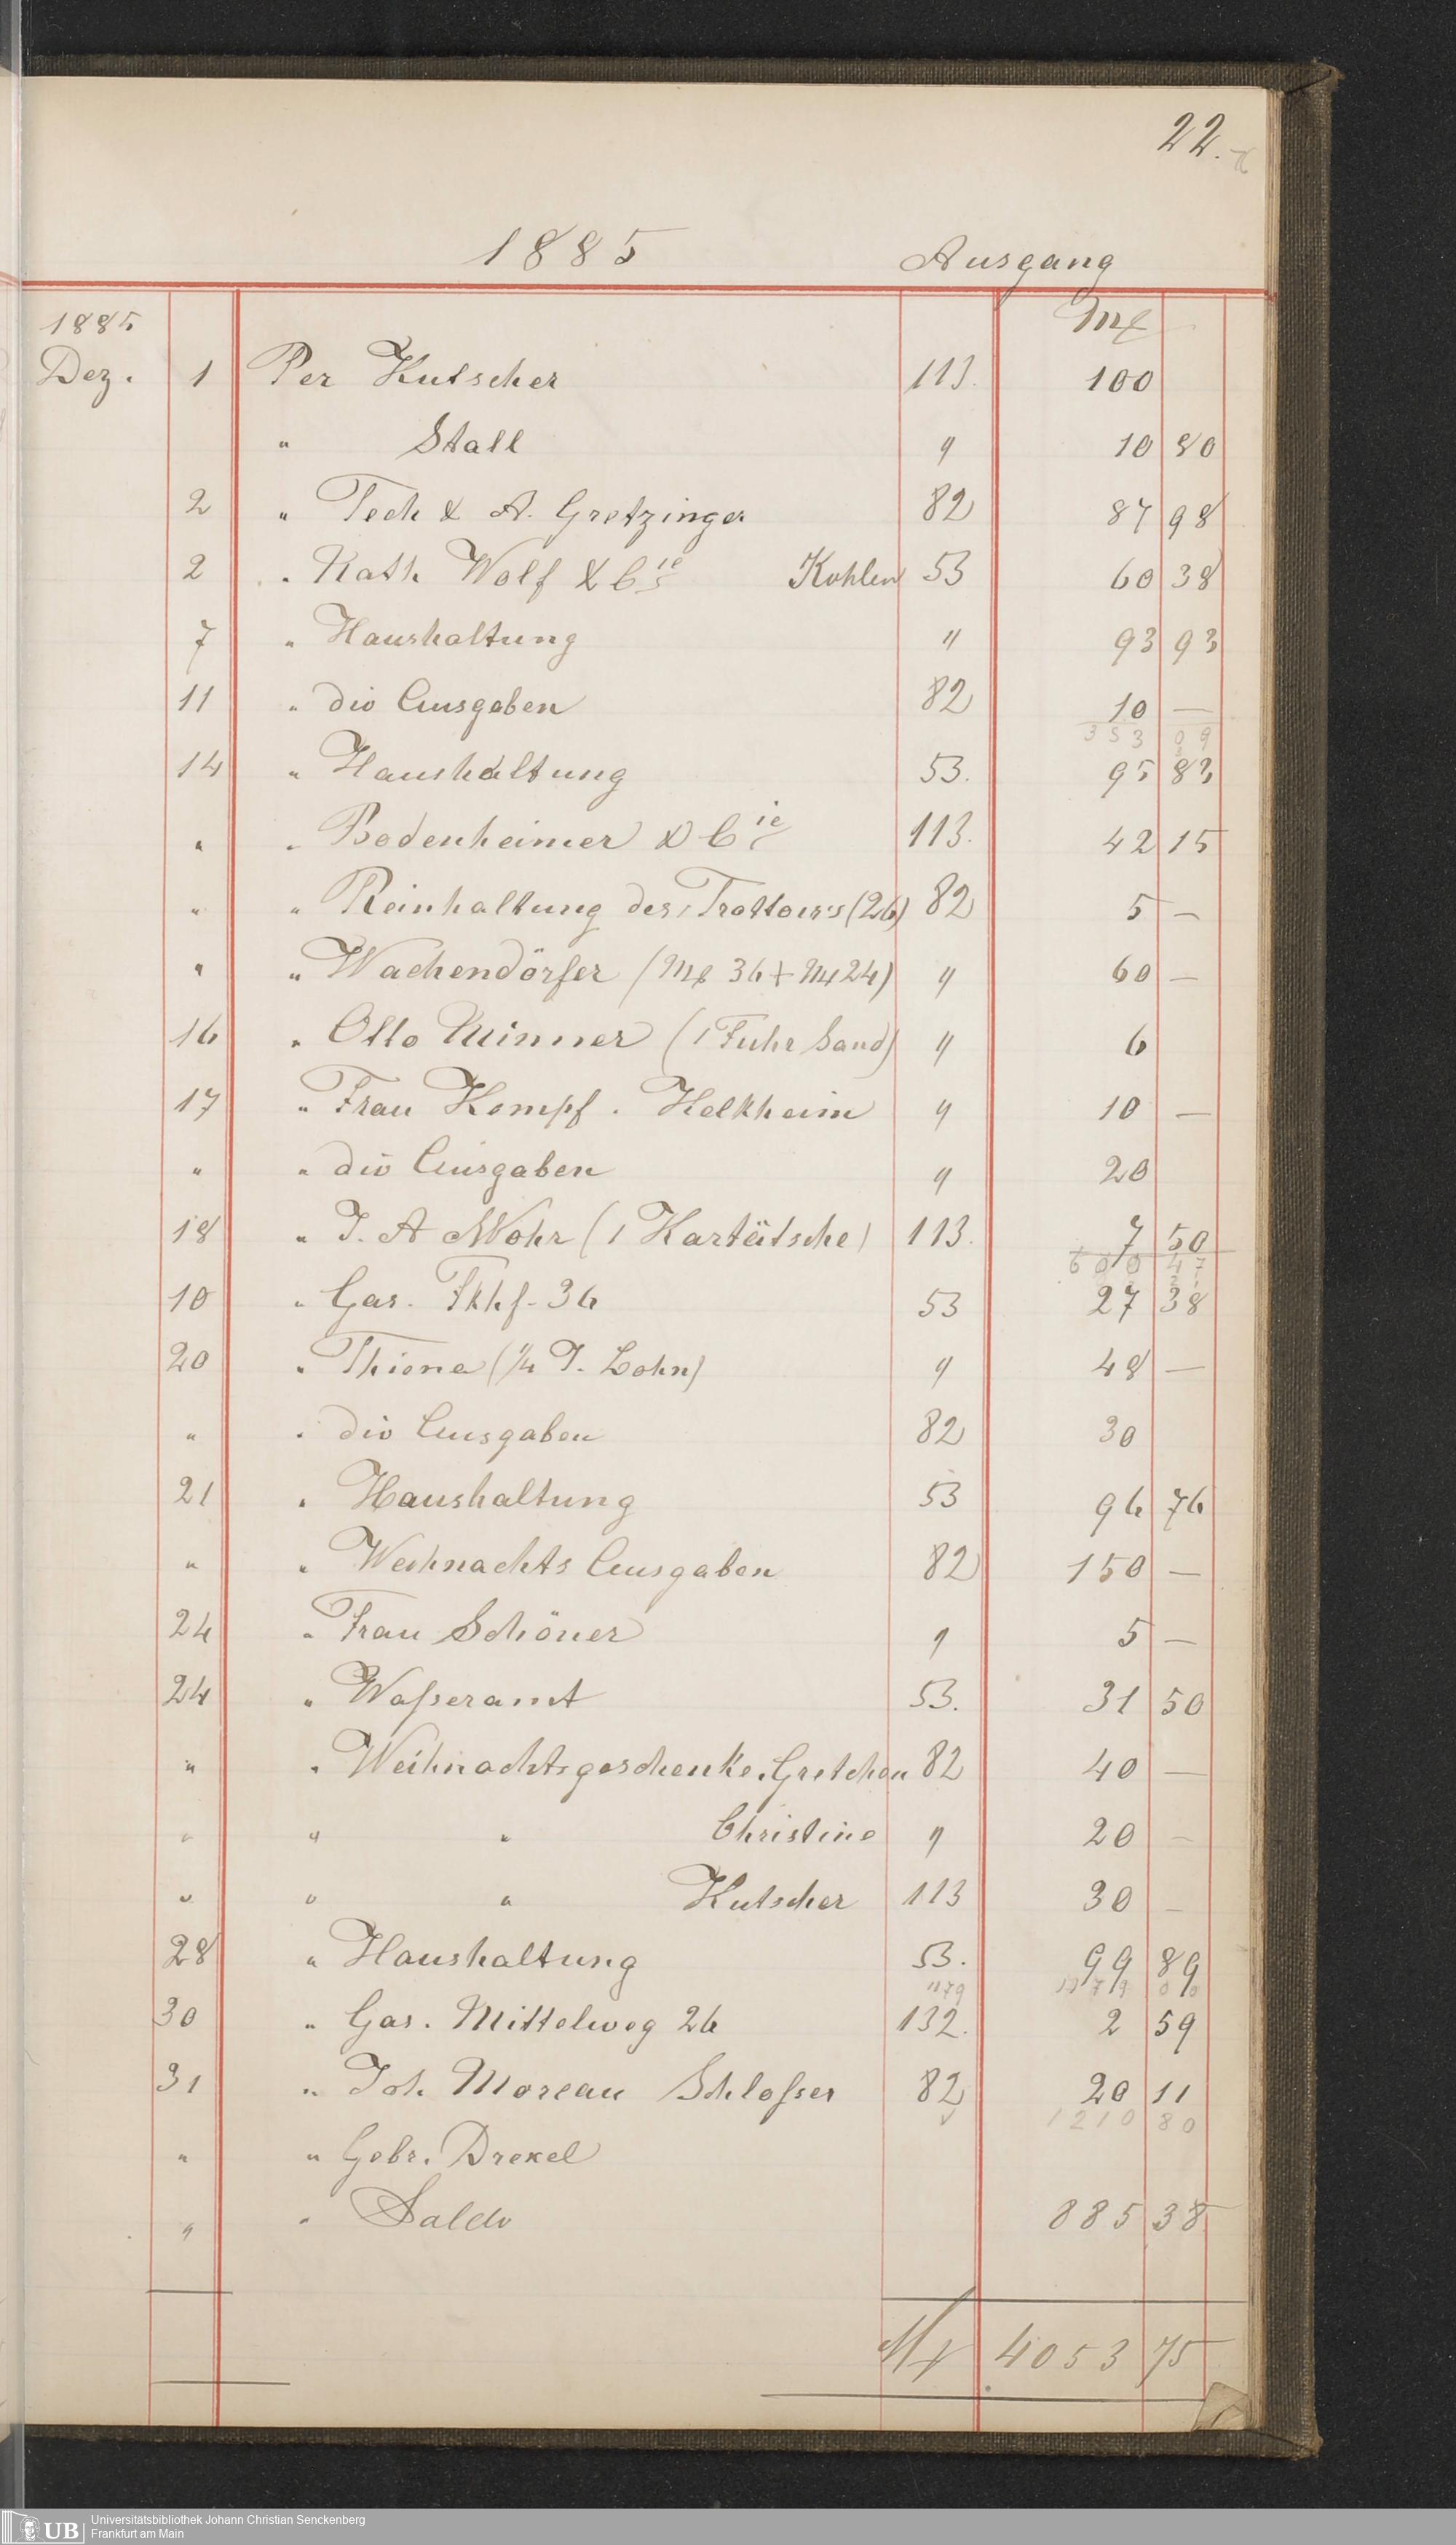 22.
1885 Ausgang
1885 Mk
Dez. 1 Per Kutscher 113. 100
" Stall " 10 80
2 " Tech & A. Gretzinger 82 87 98
2 " Kath Wolf & Cie Kohlen 53 60 38
7 " Haushaltung " 93 93
11 " div Ausgaben 82 10 —
353 09
14 " Haushaltung 53. 95 83
" " Bodenheimer & Cie 113. 42 15
" " Reinhaltung des Trottoirs (26) 82 5 —
" " Wachendörfer (Mk 36 + Mk 24) " 60 —
16 " Otto Minner (1 Fuhr Sand) " 6
17 " Frau Kompf. Kelkheim " 10 —
" " div Ausgaben " 20
18 " J. A Mohr (1 Kartätsche) 113. 7 50
600 47
10 " Gas. Fkhf. 36 53 27 38
20 " Thione (1/4 J. Lohn) " 48 —
" " div Ausgaben 82 30
21 " Haushaltung 53 96 76
" " Weihnachts Ausgaben 82 150 —
24 " Frau Schöner " 5 —
24 " Waßeramt 53. 31 50
" " Weihnachtsgeschenke. Gretchen 82 40 —
" " " Christine " 20 —
" " " Kutscher 113 30 —
28 " Haushaltung 53. 99 89
1179 1179 00
30 " Gas. Mittelweg 26 132. 2 59
31 " Joh. Moreau Schloßer 82 20 11
1210 80
" " Gebr. Drexel
" " Saldo 885 38
Mk 4053 75
UB Universitätsbibliothek Johann Christian Senckenberg
Frankfurt am Main